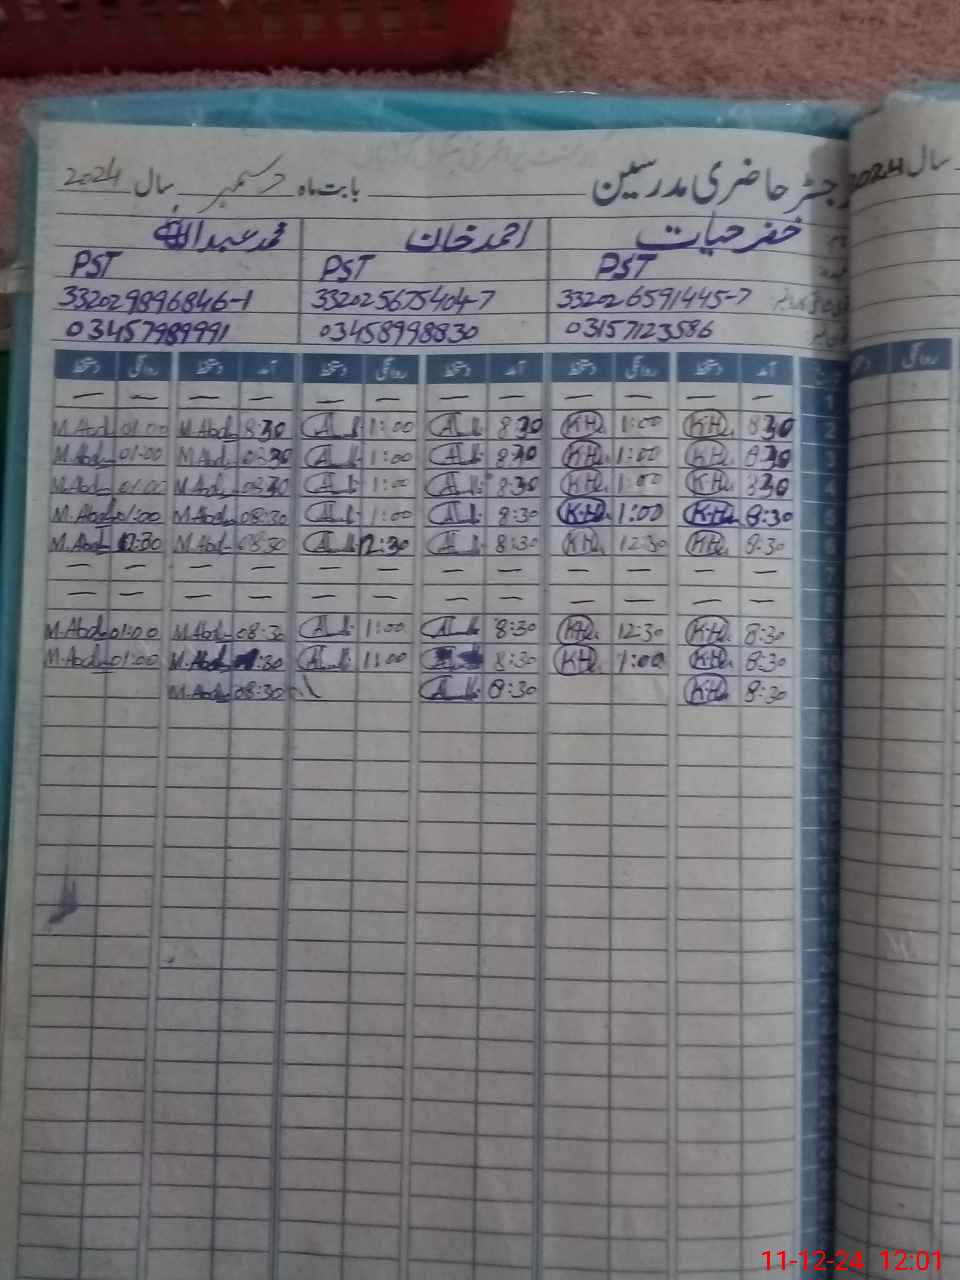 رجسٹر حاضری مدرسین بابت ماہ دسمبر سال 2024
خضر حیات احمد خان محمد عبداللہ
PST PST PST
332026591445-7 332025675404-7 332029896846-1
03157123586 03458998830 03457989991
آمد دستخط روانگی دستخط آمد دستخط روانگی دستخط آمد دستخط روانگی دستخط
1 — — — — — — — — — — — —
2 8:30 KH. 1:00 KH. 8:30 A 1:00 A 8:30 M.Abd 01:00 M.Abd
3 8:30 KH. 1:00 KH. 8:30 A 1:00 A 08:30 M.Abd 01:00 M.Abd
4 8:30 KH. 1:00 KH. 8:30 A 1:00 A 08:30 M.Abd 01:00 M.Abd
5 8:30 KH. 1:00 KH. 8:30 A 1:00 A 08:30 M.Abd 01:00 M.Abd
6 8:30 KH. 12:30 KH. 8:30 A 12:30 A 08:30 M.Abd 12:30 M.Abd
7 — — — — — — — — — — — —
8 — — — — — — — — — —
9 8:30 KH. 12:30 KH. 8:30 A 1:00 A 08:30 M.Abd 01:00 M.Abd
10 8:30 KH. 1:00 KH. 8:30 A 1:00 A :30 M.Abd 01:00 M.Abd
11 8:30 KH. 8:30 A 08:30 M.Abd
12
13
14
15
سال 2024
روانگی
11-12-24 12:01